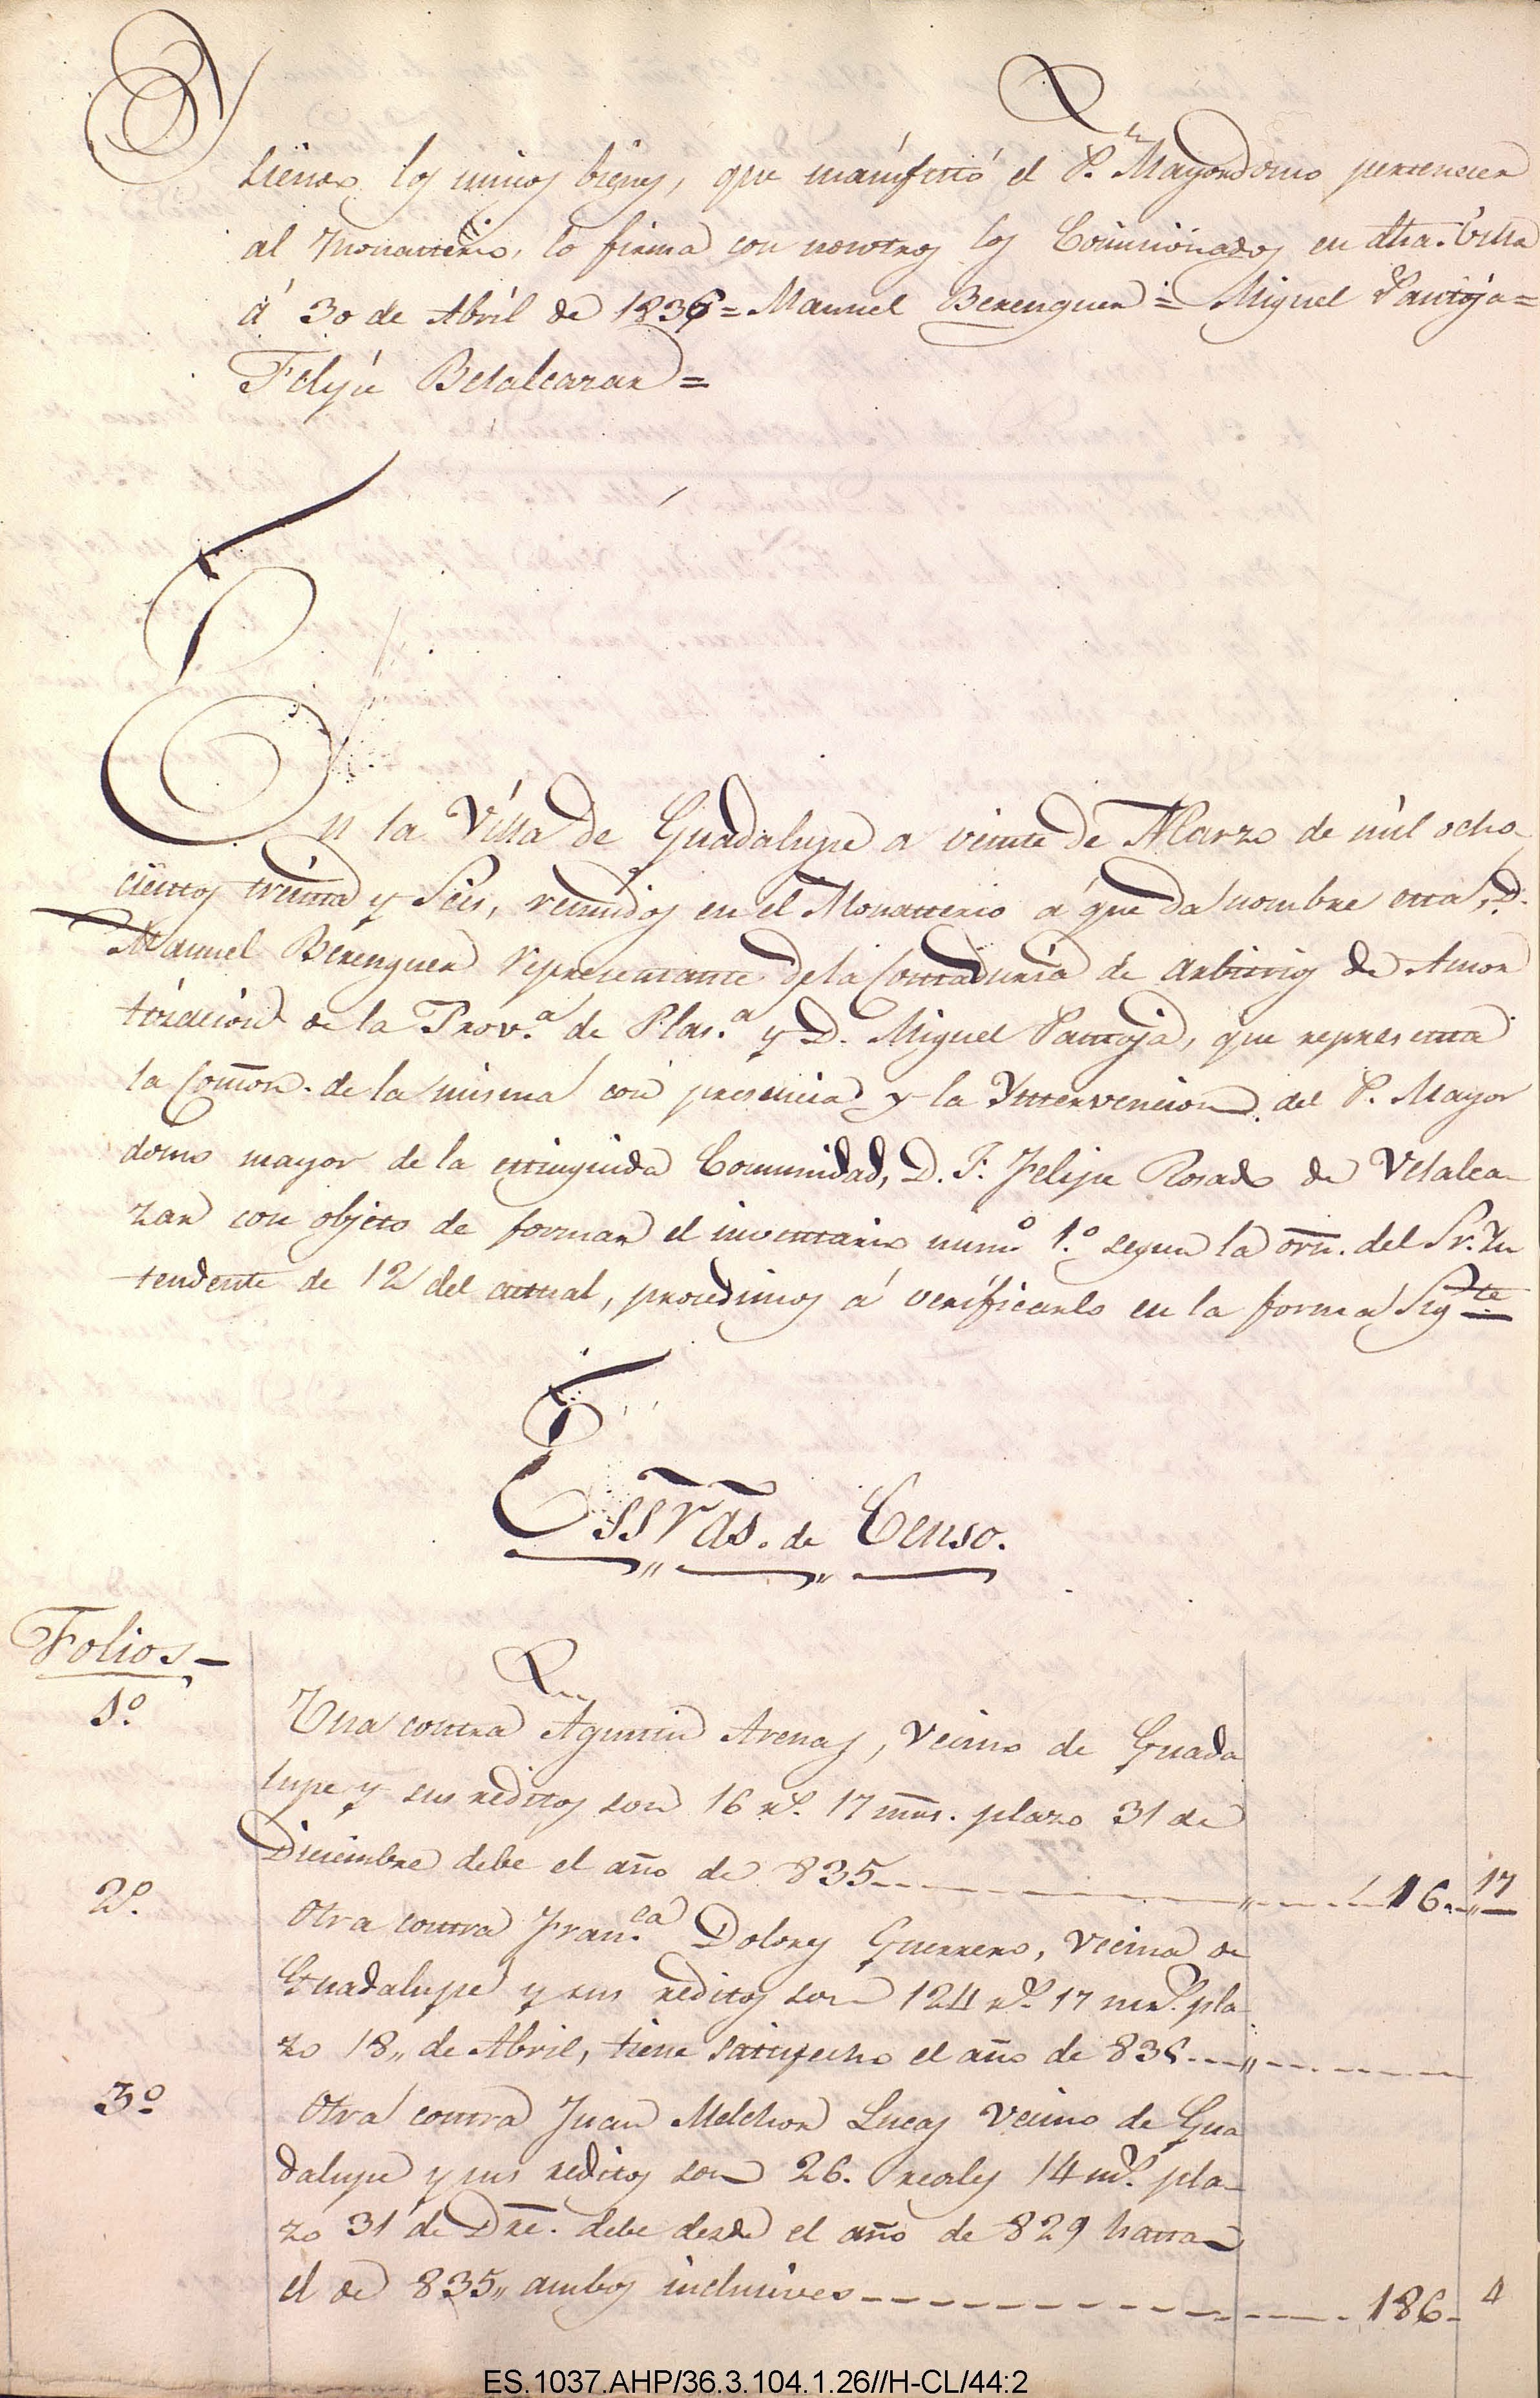 Y
siendo los unicos bienes, que manifestó el P. Mayordomo pertenecer
al Monasterio, lo firma con nosotros los Comisionados en dha. Villa
á 30 de Abril de 1836 = Manuel Berenguer = Miguel Pantoja =
Felipe Belalcazar =
En la Villa de Guadalupe a veinte de Marzo de mil ocho
cientos treinta y Seis, reunidos en el Monasterio á que da nombre esta, D.
Manuel Berenguer representante de la Contaduría de Arbitrios de Amor
tización de la Prov.ª de Plas.ª y D. Miguel Pantoja, que representa
la Comon. de la misma con presencia y la Yntervencion del P. Mayor
domo mayor de la extinguida Comunidad, D. F. Felipe Rosado de Velalca
zar con objeto de formar el inventario numº 1.º segun la orn. del Sr. Yn
tendente de 12 del actual, procedimos á verificarlo en la forma Sigte
Essras. de Censo.
Folios
1º. Una contra Agustin Arenas, Vecino de Guada
lupe y sus reditos son 16 rs. 17 mrs. plazo 31 de
Diciembre debe el año de 835 16. 17
2º. Otra contra Fran.ca Dolores Guerrero, Vecina de
Guadalupe y sus reditos son 124 rs. 17 mrs. pla
zo 18,, de Abril, tiene satisfecho el año de 835
3º Otra contra Juan Melchor Lucas Vecino de Gua
dalupe y sus reditos son 26. reales 14 ms. pla
zo 31 de Dre. debe desde el año de 829 hasta
el de 835,, ambos inclusives 186 4
ES.1037.AHP/36.3.104.1.26//H-CL/44:2